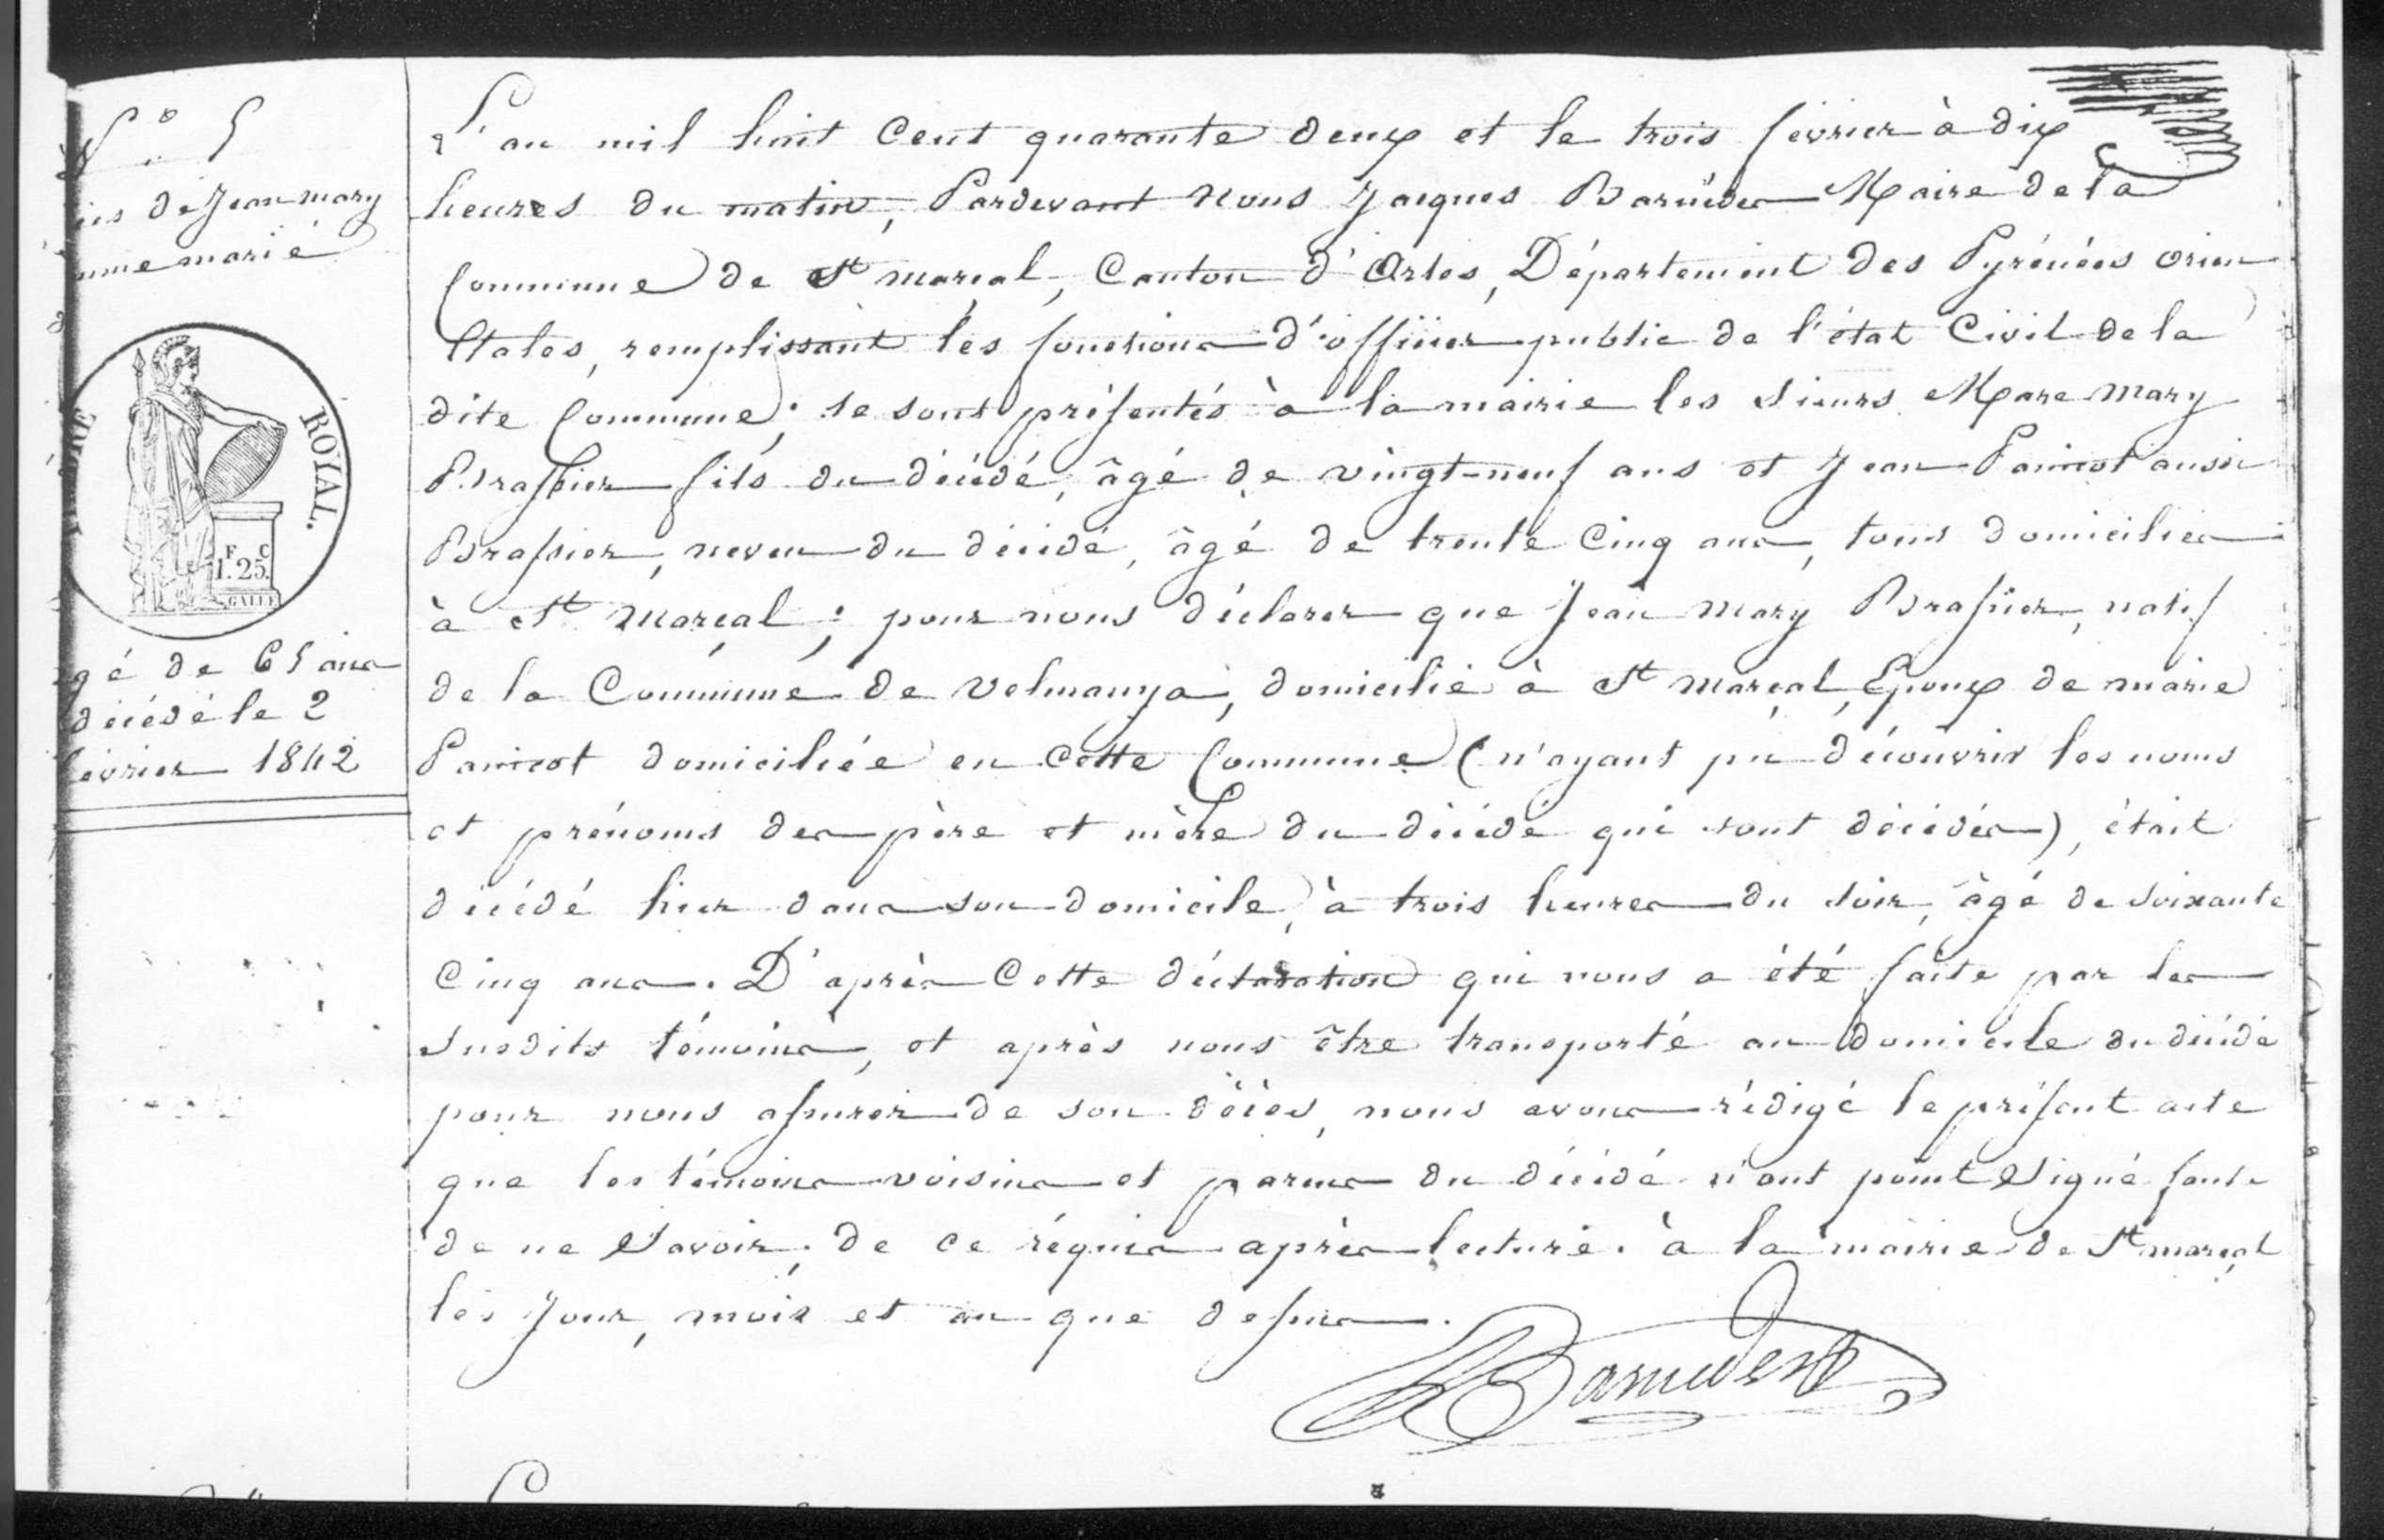 N.° 5
ès de Jean mary
mme marié
TIMBRE ROYAL.
F C
1.25.
GALLE
gé de 65 ans
décédé le 2
février 1842
L'an mil huit Cent quarante deux et le trois février à dix
heures du matin, Pardevant Nous Jacques Maire de la
Commune de St marçal, Canton d'Arles, Département des Pyrénées orien
ttales, remplissant les fonctions d'officier public de l'état Civil de la
dite Commune; se sont présentés à la mairie les Sieurs Marc Mary
Brassier fils du décédé, âgé de vingt-neuf ans et Jean Panicot aussi
Brassier, neveu du décédé, âgé de trente Cinq ans, tous domiciliés
à St Marçal; pour nous déclarer que Jean Mary Brassier, natif
de la Commune de Velmanya, domicilié à St Marçal, Epoux de marie
Panicot domiciliée en Cette Commune (n'ayant pu découvrir les noms
et prénoms des père et mère du décédé qui sont décédés), était
décédé hier dans son domicile, à trois heures du soir, âgé de Soixante
Cinq ans. D'après Cette déclaration qui nous a été faite par les
Susdits témoins, et après nous être transporté au Domicile du décédé
pour nous assurer de son décès, nous avons rédigé le présent acte
que les témoins voisins et parens du décédé n'ont point Signé faute
de ne Savoir, de ce réquis après lecture. à la mairie de St marçal
les Jour, mois et an que dessus.